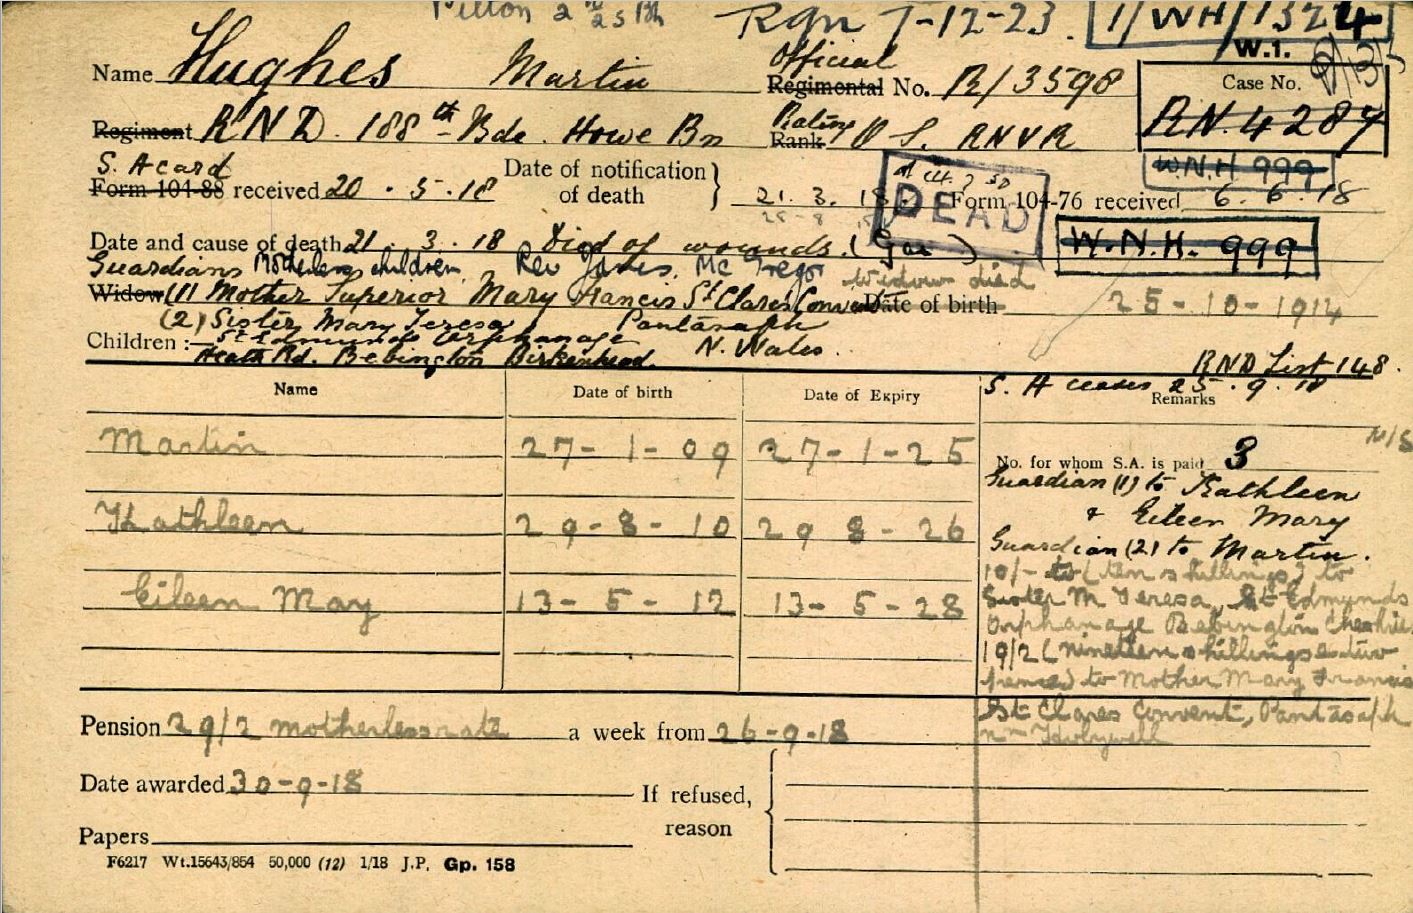 Rgn 7-12-23. 1/WH/1324
W.1.
Name Hughes Martin Official Regimental No. R/3598
Case No. RN.4287
Regiment R.N.D. 188th Bde. Howe Bn Rating Rank O.S. RNVR
W.N.H 999
S. A card
Form 104-88 received 20 . 5 . 18 Date of notification of death } 21. 3. 18 Form 104-76 received 6. 6. 18
DEAD
Date and cause of death 21 . 3 . 18 Died of wounds. (Gas)
W.N.H. 999
Guardians Motherless children Rev James Mc Gregor Widow died
Widow (1) Mother Superior Mary Francis St Clares Convent Date of birth 25-10-1914
(2) Sister Mary Teresa Pantasaph
Children :— St Edmunds Orphanage N. Wales.
Heath Rd. Bebington Birkenhead.
RND List 148.
S. A ceases 25 . 9 . 18
Name Date of birth Date of Expiry Remarks
Martin 27-1-09 27-1-25
No. for whom S.A. is paid 3
Guardian (1) to Kathleen
& Eileen Mary
Kathleen 29-8-10 29 8-26
Guardian (2) to Martin.
10/- to (ten shillings) to
Eileen May 13-5-12 13-5-28
Sister M Teresa, St Edmunds
Orphanage Bebington Cheshire
19/2 (nineteen shillings & two
pence) to Mother Mary Francis
St Clares Convent, Pantasaph
nr Holywell
Pension 29/2 motherless rate a week from 26-9-18
Date awarded 30-9-18 If refused, reason
Papers
F6217 Wt.15643/854 50,000 (12) 1/18 J.P. Gp. 158